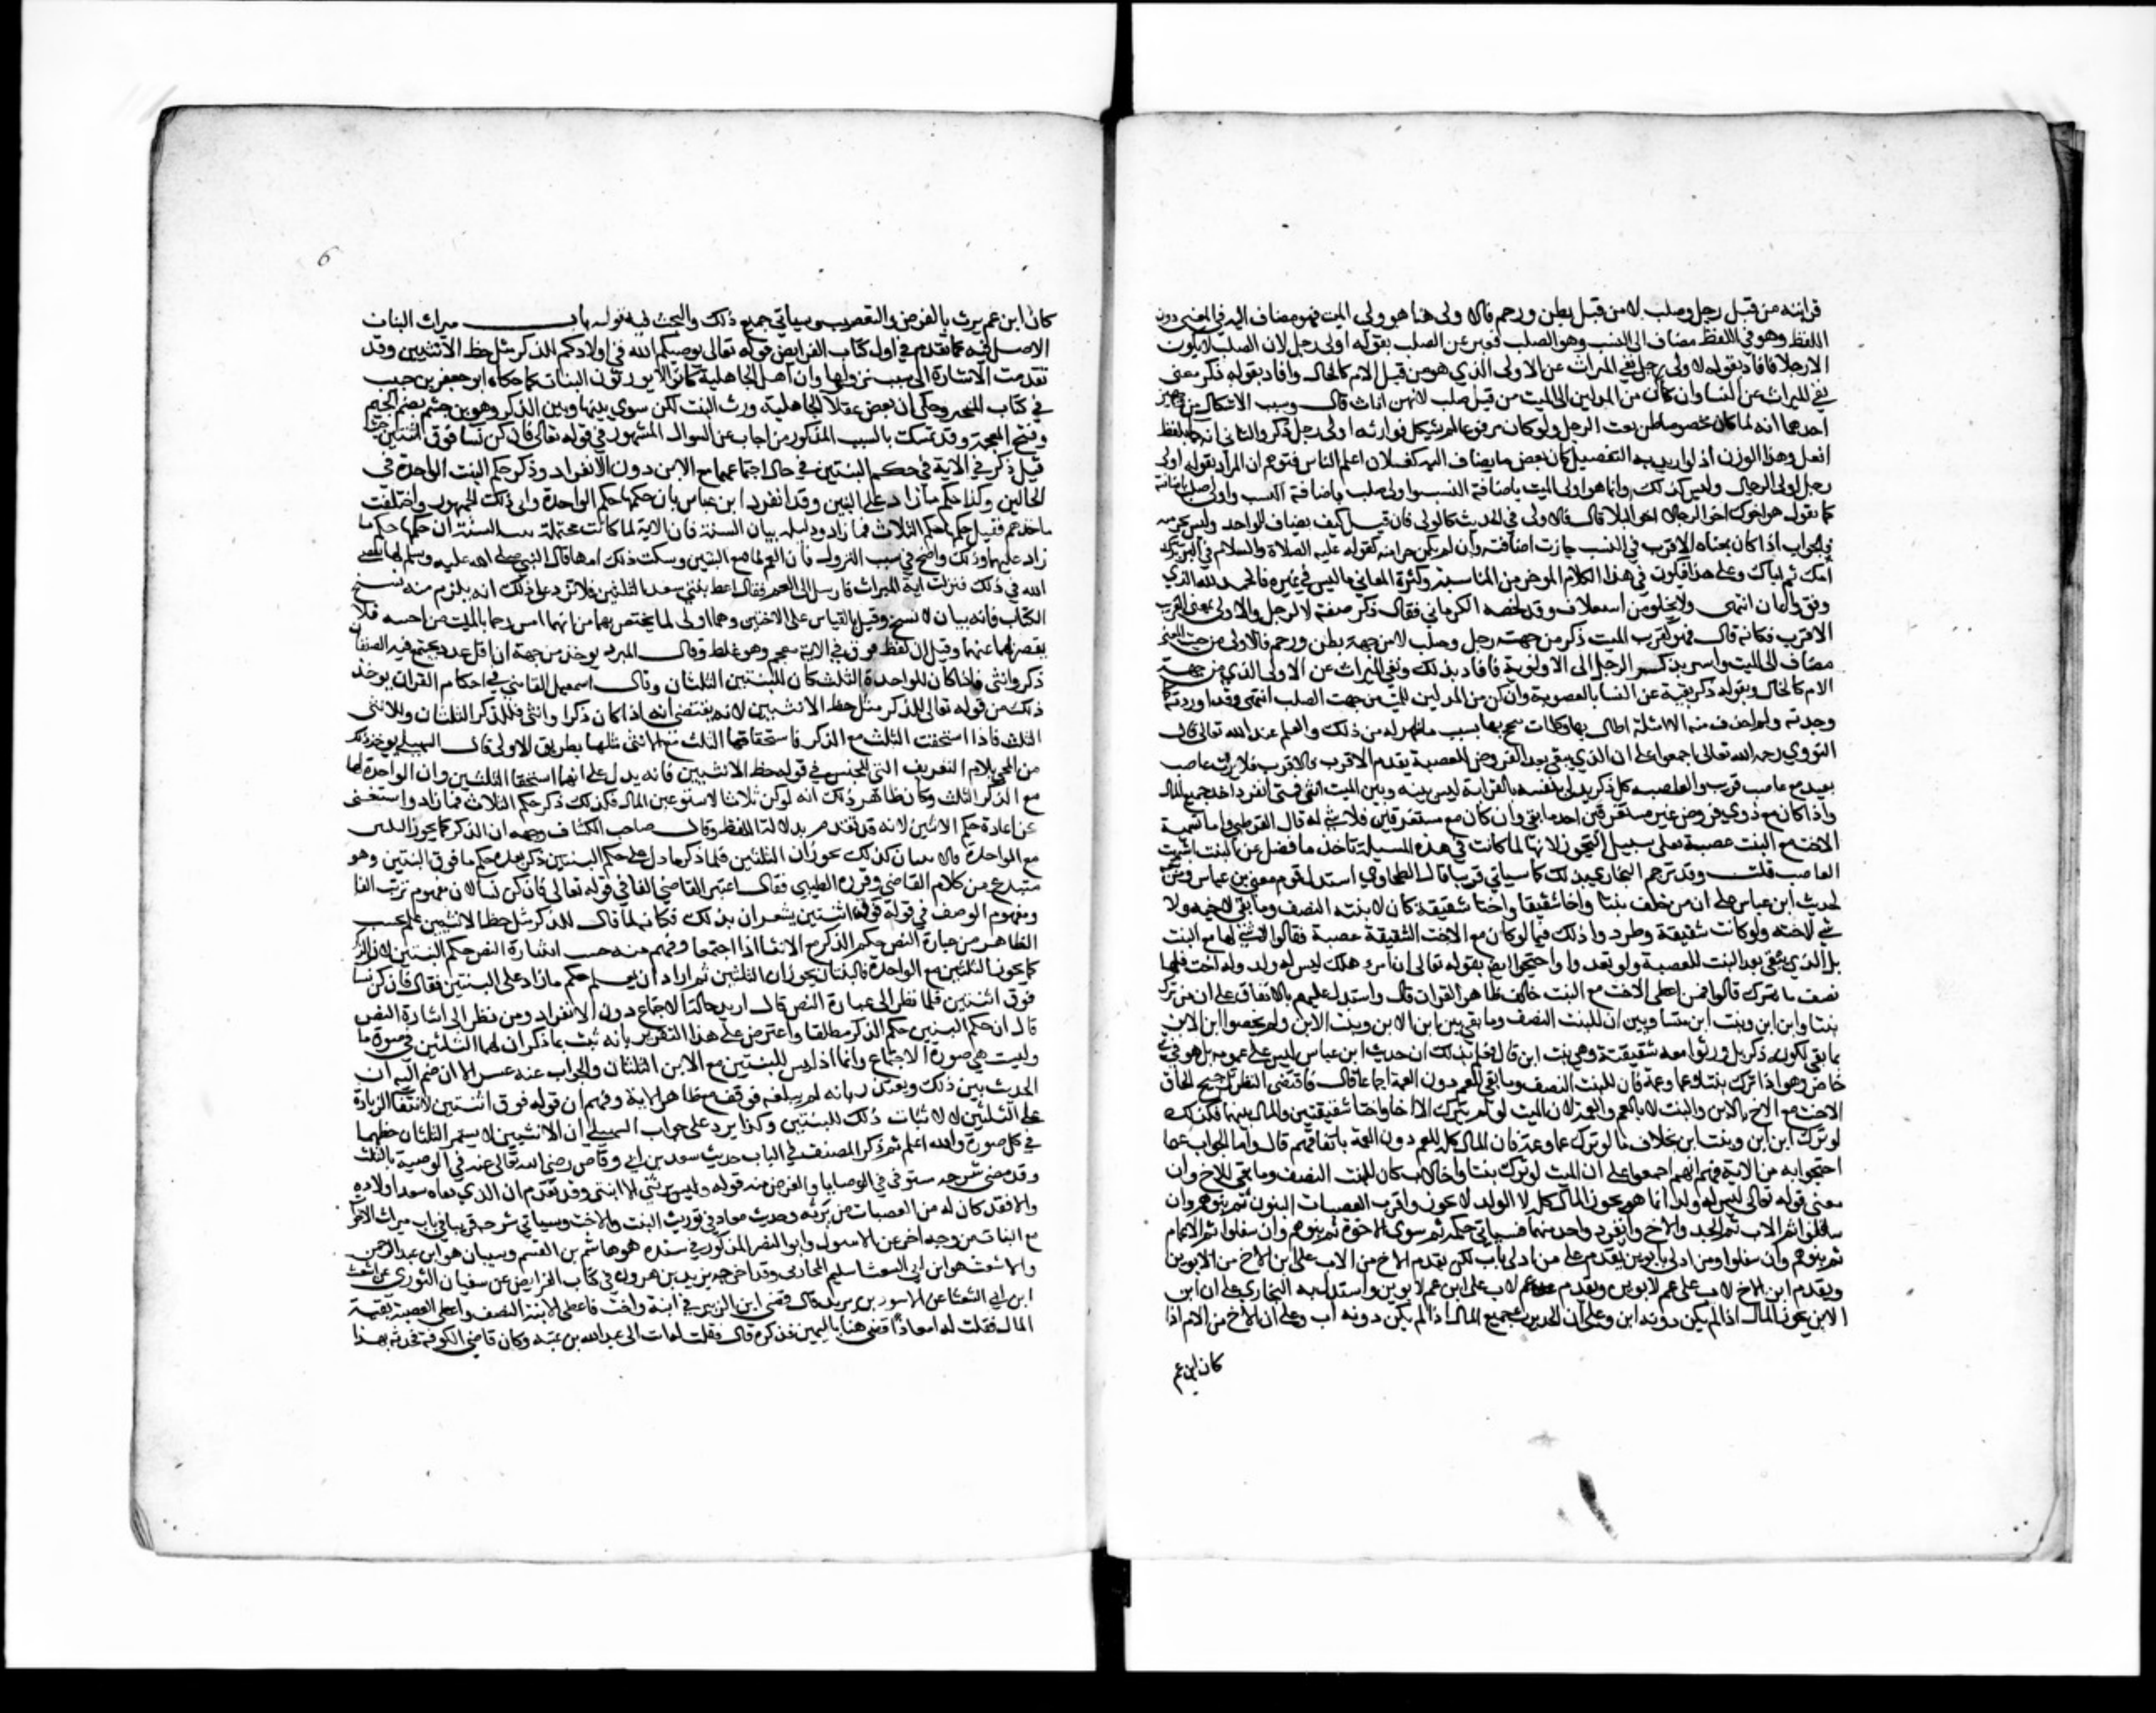 قرابته من قبل رجل وصلب لا من قبل بطن ورحم فالاولى هنا هو ولي الميت فهو مضاف اليه في المعنى دون
اللفظ وهو في اللفظ مضاف الى النسب وهو الصلب فعبر عن الصلب بقوله اولى رجل لان الصلب لا يكون
الا رجلا فافاد بقوله لاولى رجل نفي الميراث عن الاولى الذي هو من قبل الام كالخال وافاد بقوله ذكر معنى
نفي الميراث عن النسا وان كان من المدلين الى الميت من قبل صلب لانهن اناث قال وسبب الاشكال من وجهين
احدهما انه لما كان مخصوصا ظن نعت الرجل ولو كان مرفوعا لم يشكل فوارثه اولى رجل ذكر والثاني انه جا بلفظ
افعل وهذا الوزن اذا اريد به التفضيل كان بعض ما يضاف اليه كفلان اعلم الناس فتوهم ان المراد بقوله اولى
رجل اولى الرجال وليس كذلك وانما هو اولى الميت باضافة النسب واولى صلب باضافته
كما تقول هو اخوك اخو الرجال اخو البلا قال فالاولى في الحديث كالولي فان قيل كيف يضاف للواحد وليس بجزء منه
فالجواب اذا كان معناه الاقرب في النسب جازت اضافته وان لم يكن جزا منه كقوله عليه الصلاة والسلام في البر بر
امك ثم اباك وعلى هذا فيكون في هذا الكلام الموجز من المتانة وكثرة المعاني ما ليس في غيره فالحمد لله الذي
وفق واعان انتهى ولا يخلو من استغلاق وقد لخصه الكرماني فقال ذكر صفة لاولى لا لرجل والاولى بمعنى القريب
الاقرب فكانه قال فهو لقريب الميت ذكر من جهة رجل وصلب لا من جهة بطن ورحم فالاولى من حيث المعنى
مضاف الى الميت واشير بذكر الرجل الى الاولوية فافاد بذلك ونفي الميراث عن الاولى الذي من جهة
الام كالخال وبقوله ذكر نفيه عن النسا بالعصوبة وان كن من المدلين للميت من جهت الصلب انتهى وقد اوردته كما
وجدته ولم احذف منه الا امثلة اطال بها وكلمات سجع بها بسبب ما ظهر له من ذلك والعلم عند الله تعالى قال
النووي رحمه الله تعالى اجمعوا على ان الذي يبقى بعد الفروض للعصبة يقدم الاقرب فالاقرب فلا يرث عاصب
بعيد مع عاصب قريب والعصبه كل ذكر يدلي بنفسه بالقرابة ليس بينه وبين الميت انثى فمتى انفرد اخذ جميع المال
واذا كان مع ذوي فروض غير مستغرقين اخذ ما بقي وان كان مع مستغرقين فلا شي له قال القرطبي واما تسمية
الاخت مع البنت عصبة فعلى سبيل التجوز لانها لما كانت في هذه المسيلة تاخذ ما فضل عن البنت اشبهت
العاصب قلت وقد ترجم البخاري بذلك كما سياتي قريبا قال الطحاوي استدل قوم يعني ابن عباس ومن تبعه
لحديث ابن عباس على ان من خلف بنتا واخا شقيقا واختا شقيقة كان لابنته النصف وما بقي لاخيه ولا
شي لاخته ولو كانت شقيقة وطردوا ذلك فيما لو كان مع الاخت الشقيقة عصبة فقالوا لا شي لها مع البنت
بل الذي يبقى بعد البنت للعصبة ولو بعدوا واحتجوا ايضا بقوله تعالى ان امرؤ هلك ليس له ولد وله اخت فلها
نصف ما ترك قالوا فمن اعطى الاخت مع البنت خالف ظاهر القران قال واستدل عليهم بالاتفاق على ان من ترك
بنتا وابن ابن وبنت ابن متساويين ان للبنت النصف وما بقي بين ابن الابن وبنت الابن ولم يخصوا ابن الابن
بما بقي لكونه ذكر بل ورثوا معه شقيقته وهي بنت ابن قال فعلم بذلك ان حديث ابن عباس ليس على عمومه بل هو في شي
خاص وهو اذا ترك بنتا وعما وعمة فان للبنت النصف وما بقي للعم دون العمة اجماعا قال فاقتضى النظر ترجيح الحاق
الاخت مع الاخ بالابن والبنت لا بالعم والعمة لان الميت لو لم يترك الا اخا واختا شقيقتين والمال بينهما فكذلك
لو ترك ابن ابن وبنت ابن بخلاف ما لو ترك عما وعمة فان المال كله للعم دون العمة باتفاقهم قال واما الجواب عما
احتجوا به من الاية فهو انهم اجمعوا على ان الميت لو ترك بنتا واخا لاب كان للبنت النصف وما بقي للاخ وان
معنى قوله تعالى ليس له ولد انما هو يحوز المال كله لا الولد لا يحوز واقرب العصبات البنون ثم بنوهم وان
سفلوا ثم الاب ثم الجد والاخ وانفرد واحد منهما فسياتي حكمه ثم سوى الاخوة ثم بنوهم وان سفلوا ثم الاعمام
ثم بنوهم وان سفلوا ومن ادلى بابوين يقدم على من ادلى باب لكن يقدم الاخ من الاب على ابن الاخ من الابوين
ويقدم ابن الاخ لاب على عم لابوين ويقدم عم لاب على ابن عم لابوين واستدل به البخاري على ان ابن
الابن يحوز المال اذا لم يكن دونه ابن وعلى ان الجد يرث جميع المال اذا لم يكن دونه اب وعلى ان الاخ من الام اذا
كان ابن عم
6
كان ابن عم يرث بالفرض والتعصيب وسياتي جميع ذلك والبحث فيه قوله باب ميراث البنات
الاصل فيه كما تقدم في اول كتاب الفرايض قوله تعالى يوصيكم الله في اولادكم للذكر مثل حظ الانثيين وقد
تقدمت الاشارة الى سبب نزولها وان اهل الجاهلية كانوا لا يورثون البنات كما حكاه ابو جعفر بن حبيب
في كتاب المحبر وحكى ان بعض عقلا الجاهلية ورث البنت لكن سوى بينها وبين الذكر وهو بن جشم بضم الجيم
وفتح المعجمة وقد تمسك بالسبب المذكور من اجاب عن السوال المشهور في قوله تعالى فان كن نسا فوق اثنتين حيث
قيل ذكر في الاية في حكم البنتين في حال اجتماعهما مع الابن دون الانفراد وذكر حكم البنت الواحدة في
الحالين وكذا حكم ما زاد على البنتين وقد انفرد ابن عباس بان حكمهما حكم الواحدة وابى ذلك الجمهور واختلفت
ماخذهم فقيل حكمهما حكم الثلاث فما زاد ودليله بيان السنة فان الاية لما كانت محتملة بينت السنة ان حكمهما حكم ما
زاد عليهما وذلك واضح في سبب النزول فان العم لما منع البنتين وسكت ذلك امهما قال النبي صلى الله عليه وسلم لها يقضي
الله في ذلك فنزلت اية الميراث فارسل الى العم فقال اعط بنتي سعد الثلثين فلا ترد على ذلك انه يلزم منه نسخ
الكتاب فانه بيان لا نسخ وقيل بالقياس على الاختين وهما اولى لما يختص بهما من انهما امس رحما بالميت من اخته فلا
يقصر بهما عنهما وقيل ان لفظ فوق في الاية مقحم وهو غلط وقال المبرد يوخذ من جهة ان اقل عدد يجتمع فيه الصنفان
ذكر وانثى فاذا كان للواحدة الثلث كان للبنتين الثلثان وقال اسمعيل القاضي في احكام القران يوخذ
ذلك من قوله تعالى للذكر مثل حظ الانثيين لانه يقتضي انه اذا كان ذكرا وانثى فللذكر الثلثان وللانثى
الثلث فاذا استحقت الثلث مع الذكر فاستحقاقها الثلث مع انثى مثلها بطريق الاولى قال السهيلي يوخذ ذلك
من المجي بلام التعريف التي للجنس في قوله حظ الانثيين فانه يدل على انهما استحقا الثلثين وان الواحدة لها
مع الذكر الثلث وكان ظاهر ذلك انه لو كن ثلاثا لاستوعبن المال فكذلك ذكر حكم الثلاث فما زاد واستغنى
عن اعادة حكم الاثنتين لانه قد تقدم بدلالة اللفظ وقال صاحب الكشاف وجهه ان الذكر كما يحوز الثلثين
مع الواحدة فالاثنتان كذلك يحوزان الثلثين فلما ذكر ما دل على حكم البنتين ذكر بعده حكم ما فوق البنتين وهو
منتزع من كلام القاضي وقرره الطيبي فقال اعتبر القاضي الفا في قوله تعالى فان كن نسا لان مفهوم ترتيب الفا
ومفهوم الوصف في قوله فوق اثنتين يشعران بذلك فكانه لما قال للذكر مثل حظ الانثيين علم بحسب
الظاهر من عبارة النص حكم الذكر مع الانثى اذا اجتمعا وفهم منه حسب اشارة النص حكم البنتين لان الذكر
كما يحوز الثلثين مع الواحدة فالبنتان يحوزان الثلثين ثم اراد ان يعلم حكم ما زاد على البنتين فقال فان كن نسا
فوق اثنتين فلما نظر الى عبارة النص قال اريد حالة الاجتماع دون الانفراد ومن نظر الى اشارة النص
قال ان حكم البنتين حكم الذكر مطلقا واعترض على هذا التقرير بانه ثبت بما ذكر ان لهما الثلثين في صورة ما
وليست هي صورة الاجتماع وانما اذ ليس للبنتين مع الابن الثلثان والجواب عنه عسر الا ان ضم اليه ان
الحديث بين ذلك ويعتذر بانه لم يبلغه فوقف مع ظاهر الاية وفهم ان قوله فوق اثنتين لانتفا الزيادة
على الثلثين لا لاثبات ذلك للبنتين وكذا يرد على جواب السهيلي ان الانثيين لا يستمر الثلثان حظهما
في كل صورة والله اعلم ثم ذكر المصنف في الباب حديث سعد بن ابي وقاص رضي الله تعالى عنه في الوصية بالثلث
وقد مضى شرحه مستوفى في الوصايا والغرض منه قوله وليس يرثني الا ابنتي وقد تقدم ان الذي نفاه سعد اولاده
والا فقد كان له من العصبات من يرثه وحديث معاذ في توريث البنت والاخت وسياتي شرحه قريبا في باب ميراث الاخوات
مع البنات من وجه اخر عن الاسود وابو النضر المذكور في سنده هو هاشم بن القسم وشيبان هو ابن عبد الرحمن
والاشعث هو ابن ابي الشعثا سليم المحاربي وقد اخرجه يزيد بن هرون في كتاب الفرايض عن سفيان الثوري عن اشعث
ابن ابي الشعثا عن الاسود بن يزيد قال قضى ابن الزبير في ابنة واخت فاعطى الابنة النصف واعطى العصبة بقية
المال فقلت له ان معاذا قضى هنا باليمن فذكره قال فقلت له ات الى عبد الله بن عتبه وكان قاضي الكوفة فحدثه بهذا